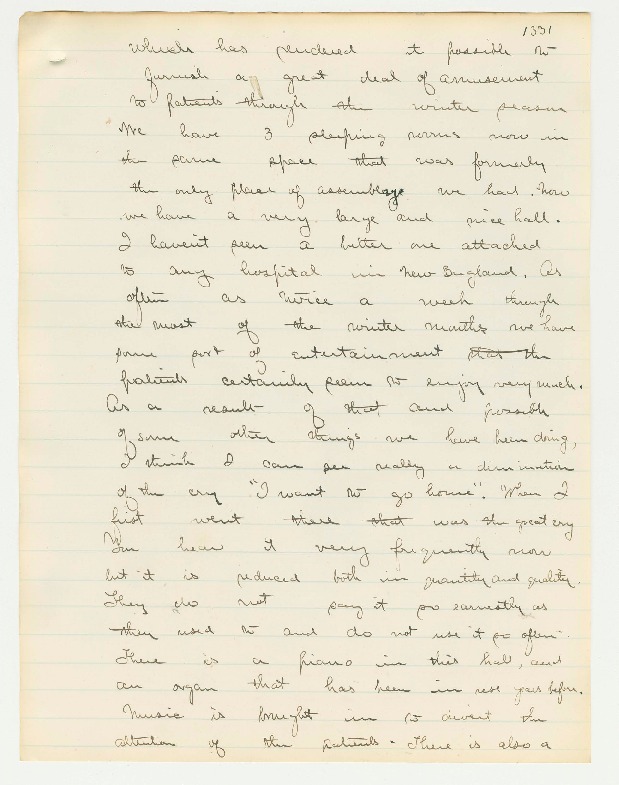 1331
which has rendered it possible to
furnish a great deal of amusement
to patients through the winter season
We have 3 sleeping rooms now in
the same space that was formerly
the only place of assemblage we had. Now
we have a very large and nice hall.
I haven't seen a better one attached
to any hospital in New England. As
often as twice a week through
the most of the winter months we have
some sort of entertainment that the
patients certainly seem to enjoy very much.
As a result of that and possible
of some other things we have been doing,
I think I can see really a diminution
of the cry "I want to go home". When I
first went there that was the great cry
You hear it very frequently now
but it is reduced both in quantity and quality.
They do not say it so earnestly as
they used to and do not use it so often.
There is a piano in this hall, and
an organ that has been in use years before.
Music is brought in to divert the
attention of the patients. There is also a